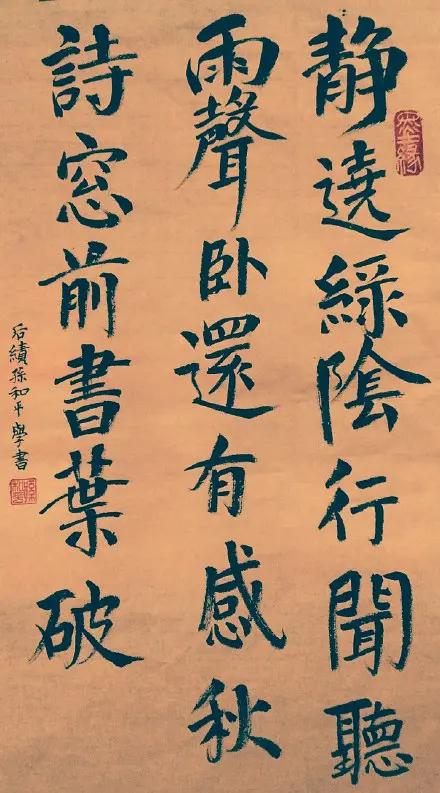 静遶綠陰行聞聽
雨聲卧還有感秋
詩窓前書葉破
后績孫和平學書
墨緣